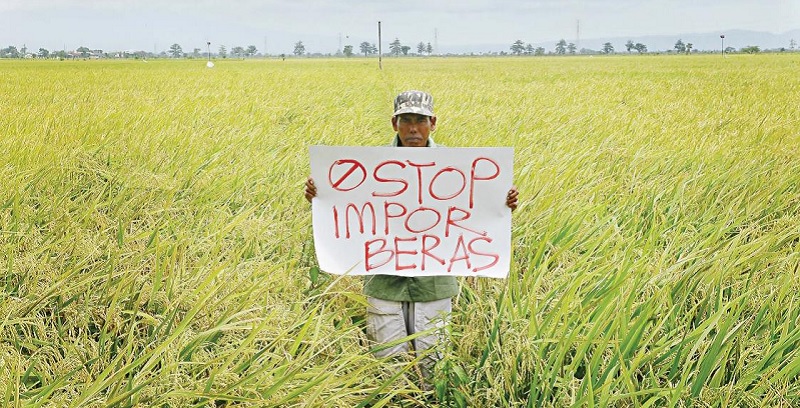 STOP
IMPOR
BERAS